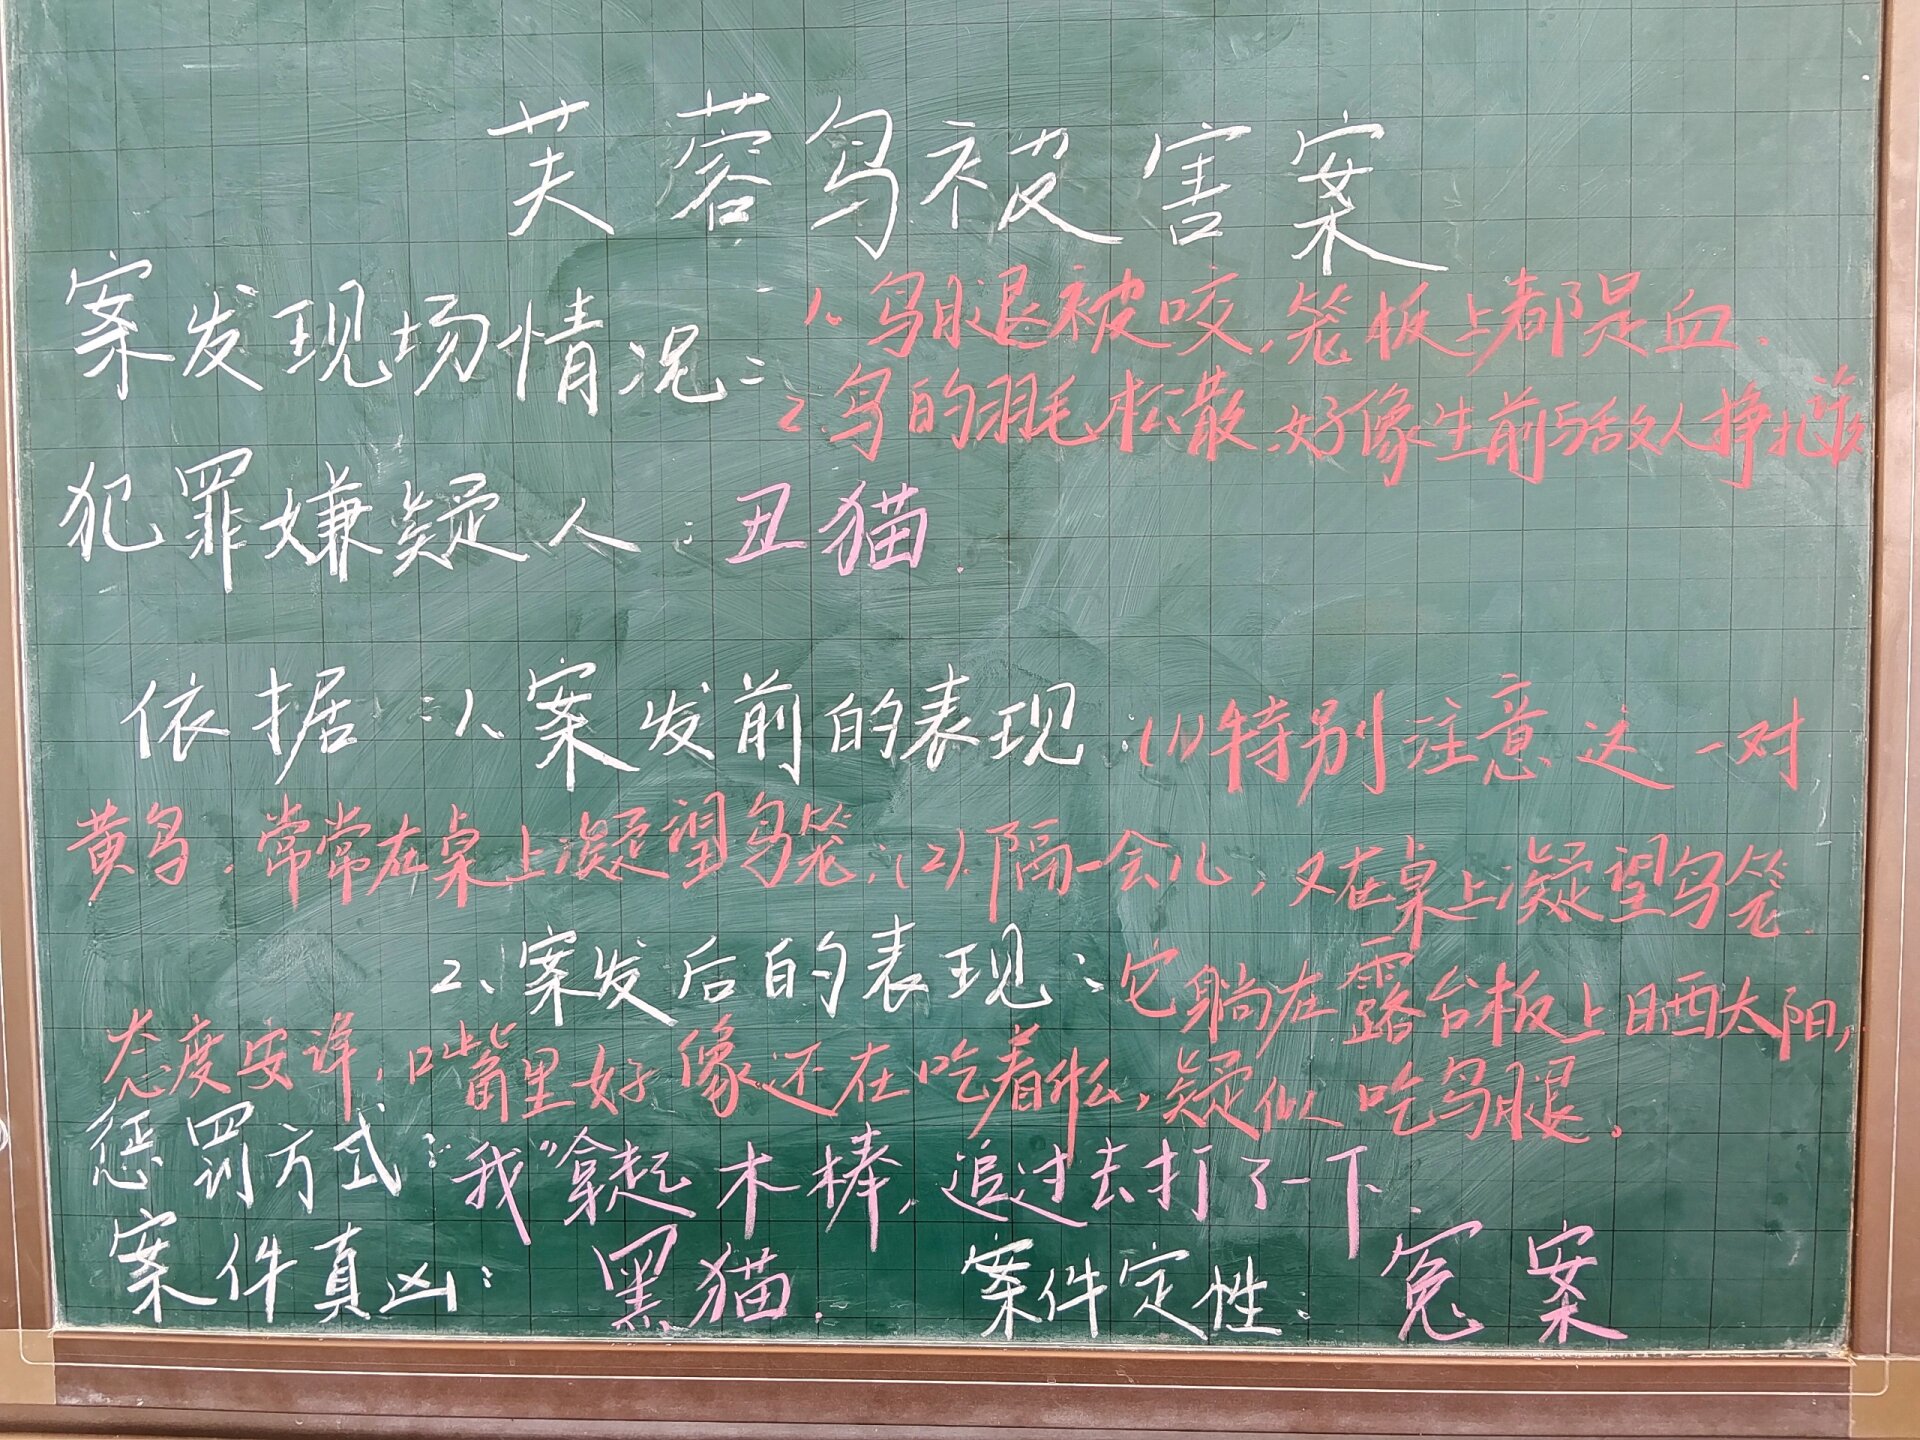 芙蓉鸟被害案
案发现场情况：1、鸟腿被咬，笼板上都是血。
2、鸟的羽毛松散，好像生前与敌人挣扎许久
犯罪嫌疑人：丑猫.
依据：1、案发前的表现：(1)特别注意这一对
黄鸟，常常在桌上凝望鸟笼；(2).隔一会儿，又在桌上凝望鸟笼.
2、案发后的表现：它躺在露台板上晒太阳，
态度安详，口嘴里好像还在吃着什么，疑似吃鸟腿。
惩罚方式：我“拿起木棒，追过去打了一下.
案件真凶：黑猫. 案件定性：冤案